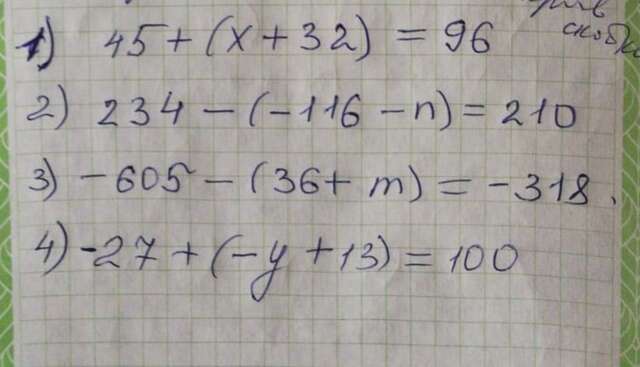 1) 45 + (x + 32) = 96
2) 234 - (-116 - n) = 210
3) -605 - (36 + m) = -318.
4) -27 + (-y + 13) = 100